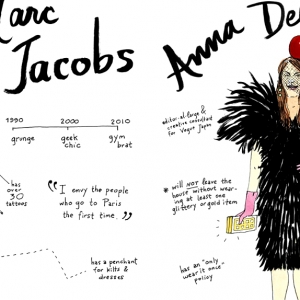 Marc
Jacobs
1990 2000 2010
grunge geek chic gym brat
has
over
30
tattoos
"I envy the people
who go to Paris
the first time."
has a penchant
for kilts &
dresses
Anna De
editor-at-large &
creative consultant
for Vogue Japan
* will NOT leave the
house without wear-
ing at least one
glittery or gold item
has an "only
wear it once"
policy